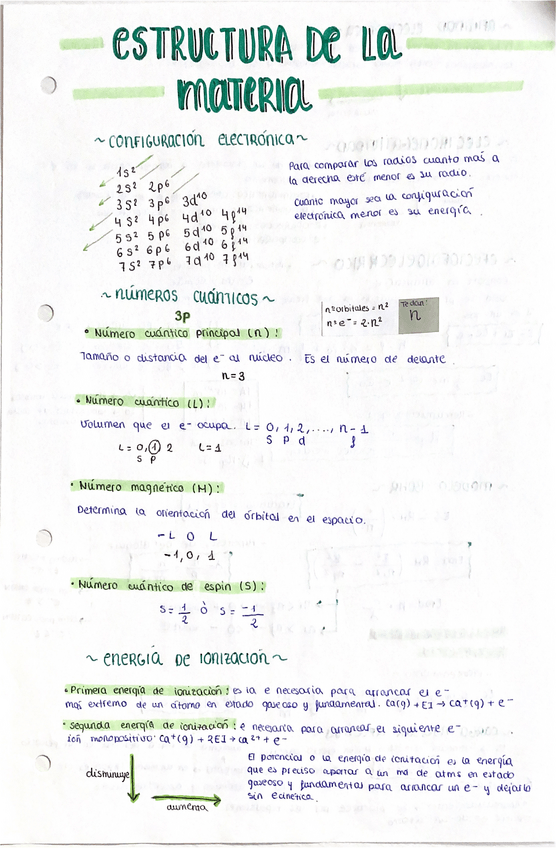 ESTRUCTURA DE LA
MATERIA
~ CONFIGURACIÓN ELECTRÓNICA ~
1s²
2s² 2p⁶
3s² 3p⁶ 3d¹⁰
4s² 4p⁶ 4d¹⁰ 4f¹⁴
5s² 5p⁶ 5d¹⁰ 5f¹⁴
6s² 6p⁶ 6d¹⁰ 6f¹⁴
7s² 7p⁶ 7d¹⁰ 7f¹⁴
Para comparar los radios cuanto más a
la derecha esté menor es su radio.
Cuanto mayor sea la configuración
electrónica menor es su energía.
~ NÚMEROS CUÁNTICOS ~
3P
nº orbitales = n²
nº e⁻ = 2·n²
Te dan:
n
• Número cuántico principal (n):
Tamaño o distancia del e⁻ al núcleo. Es el número de delante.
n=3
• Número cuántico (L):
Volumen que el e⁻ ocupa. L = 0, 1, 2, ...., n - 1
S P d f
L = 0, 1, 2 L=1
S P
• Número magnético (M):
Determina la orientación del órbital en el espacio.
-L O L
-1, 0, 1
• Número cuántico de espín (S):
S = 1/2 ó S = -1/2
~ ENERGÍA DE IONIZACIÓN ~
• Primera energía de ionización: es la e necesaria para arrancar el e⁻
más extremo de un átomo en estado gaseoso y fundamental. Ca(g) + EI → Ca⁺(g) + e⁻
• Segunda energía de ionización: e necesaria para arrancar el siguiente e⁻
ión monopositivo: Ca⁺(g) + 2EI → Ca²⁺ + e⁻
disminuye
aumenta
El potencial o la energía de ionización es la energía
que es preciso aportar a un mol de atms en estado
gaseoso y fundamental para arrancar un e⁻ y dejarlo
sin ecinética.